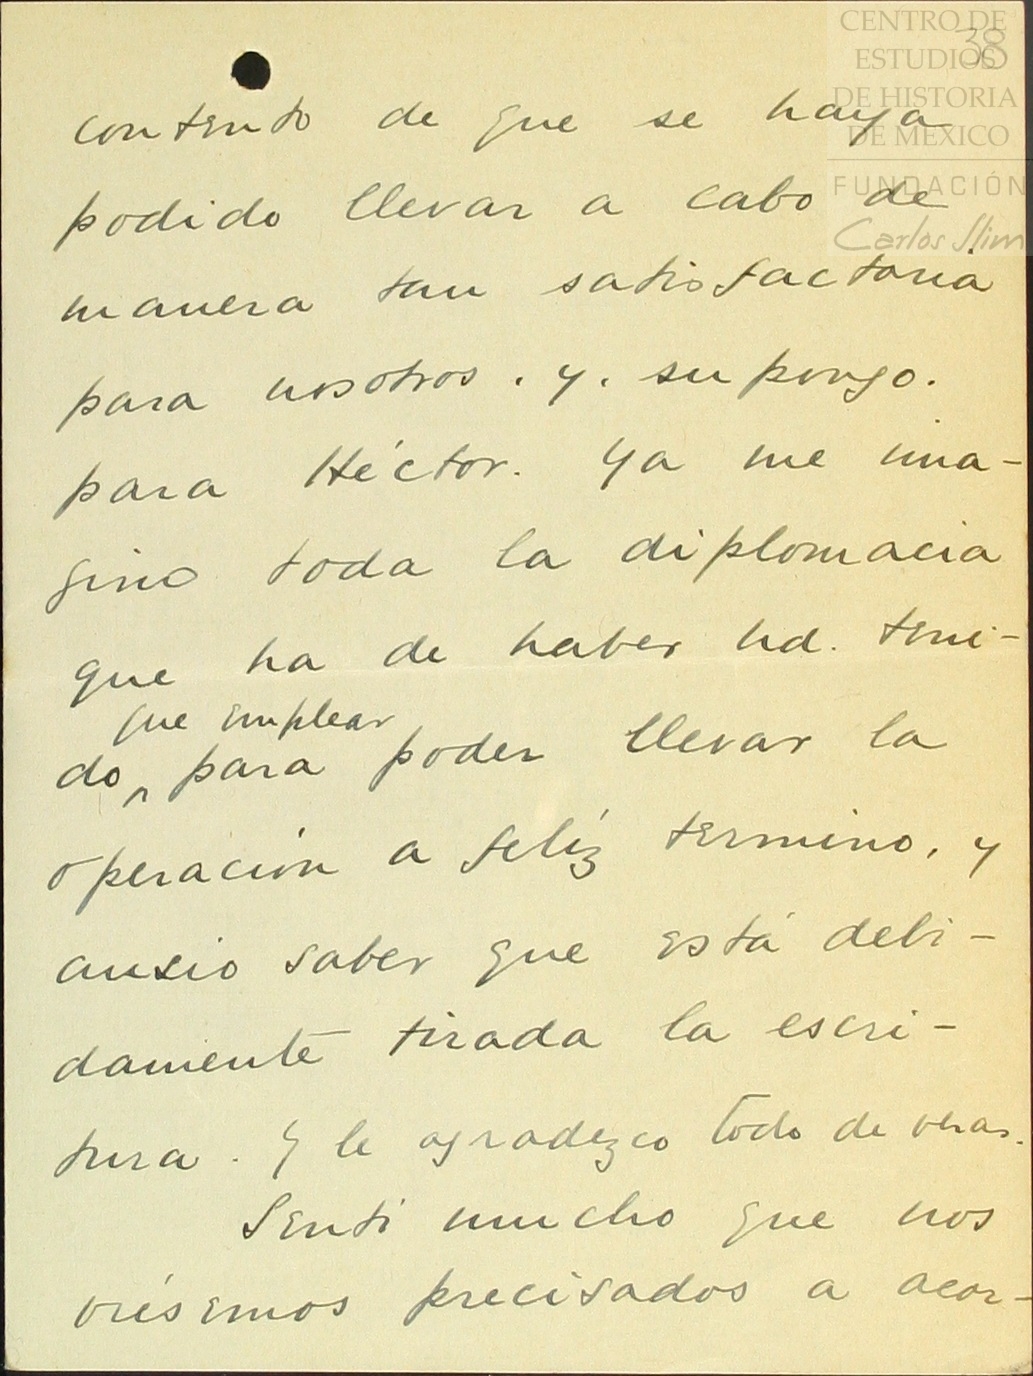 CENTRO DE
ESTUDIOS
DE HISTORIA
DE MEXICO
FUNDACIÓN
Carlos Slim
38
contento de que se haya
podido llevar a cabo de
manera tan satisfactoria
para nosotros, y, supongo.
para Héctor. Ya me ima-
gino toda la diplomacia
que ha de haber Ud. teni-
que emplear
do ^ para poder llevar la
operación a felíz termino, y
ansio saber que está debi-
damente tirada la escri-
tura. Y le agradezco todo de veras.
Sentí mucho que nos
viésemos precisados a acor-